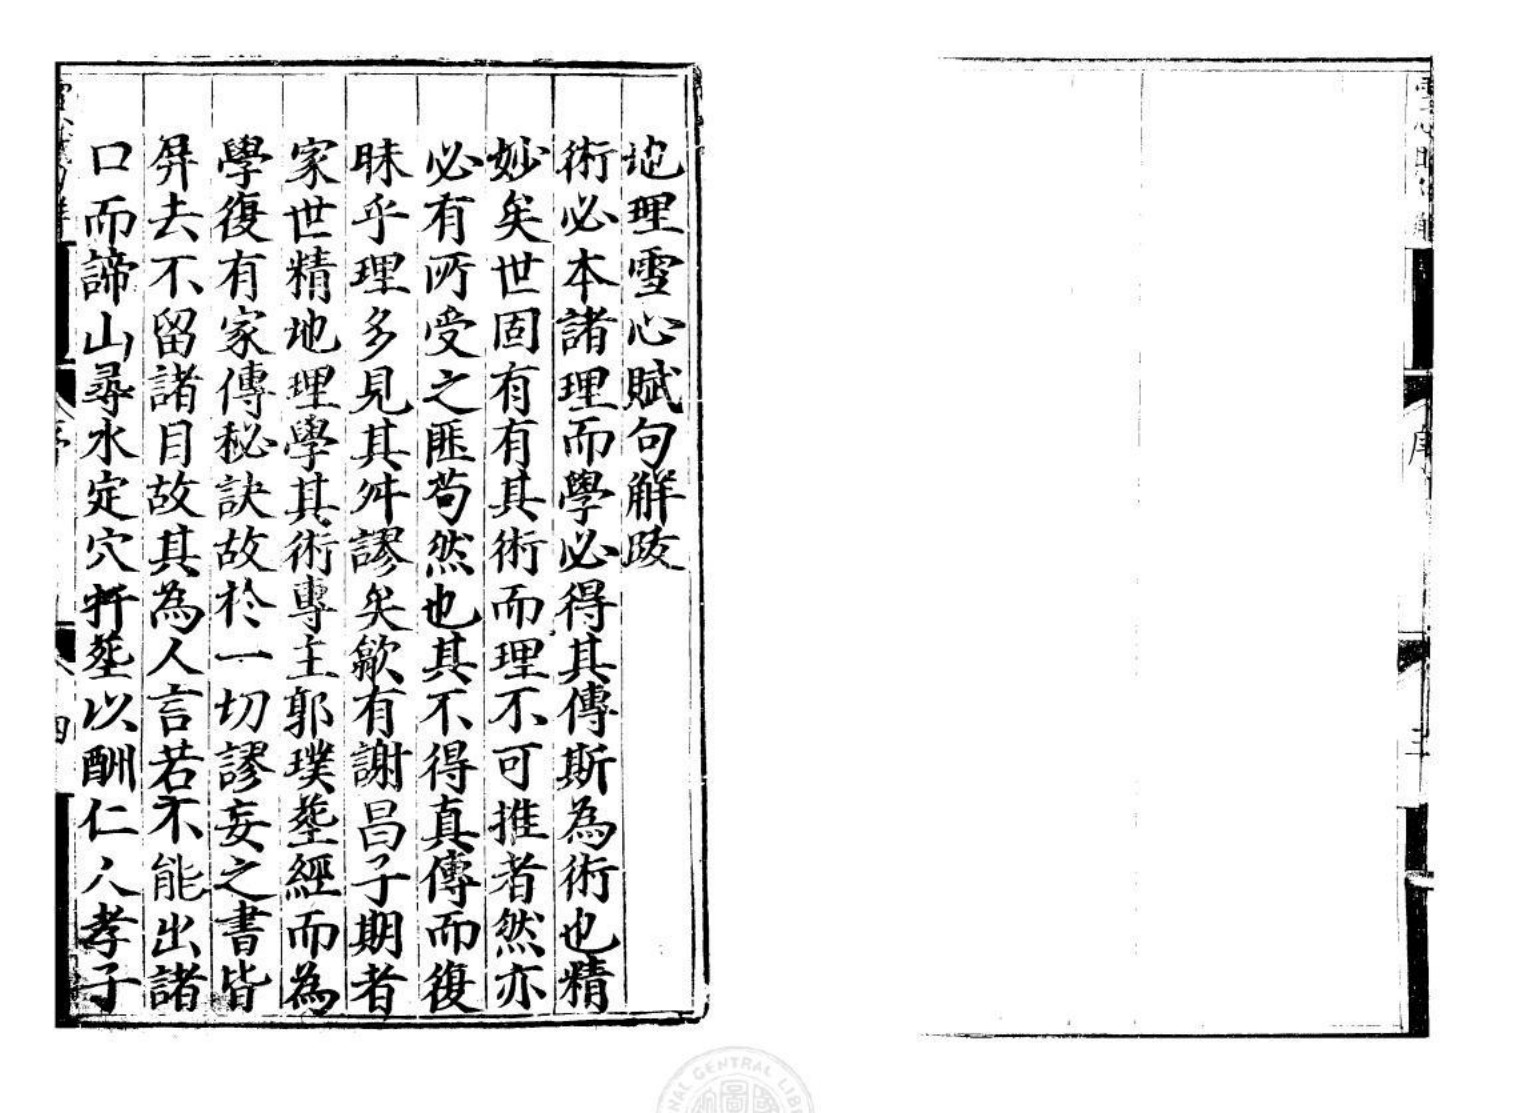 地理雪心賦句解䟦
術必本諸理而學必得其傳斯為術也精
妙矣世固有有其術而理不可推者然亦
必有所受之匪苟然也其不得真傳而復
昧乎理多見其舛謬矣歙有謝昌子期者
家世精地理學其術專主郭璞塟經而為
學復有家傳秘訣故於一切謬妄之書皆
屏去不留諸目故其為人言若不能出諸
口而諦山尋水定穴扦塟以酬仁人孝子
序
四
序
三
NATIONAL CENTRAL LIBR